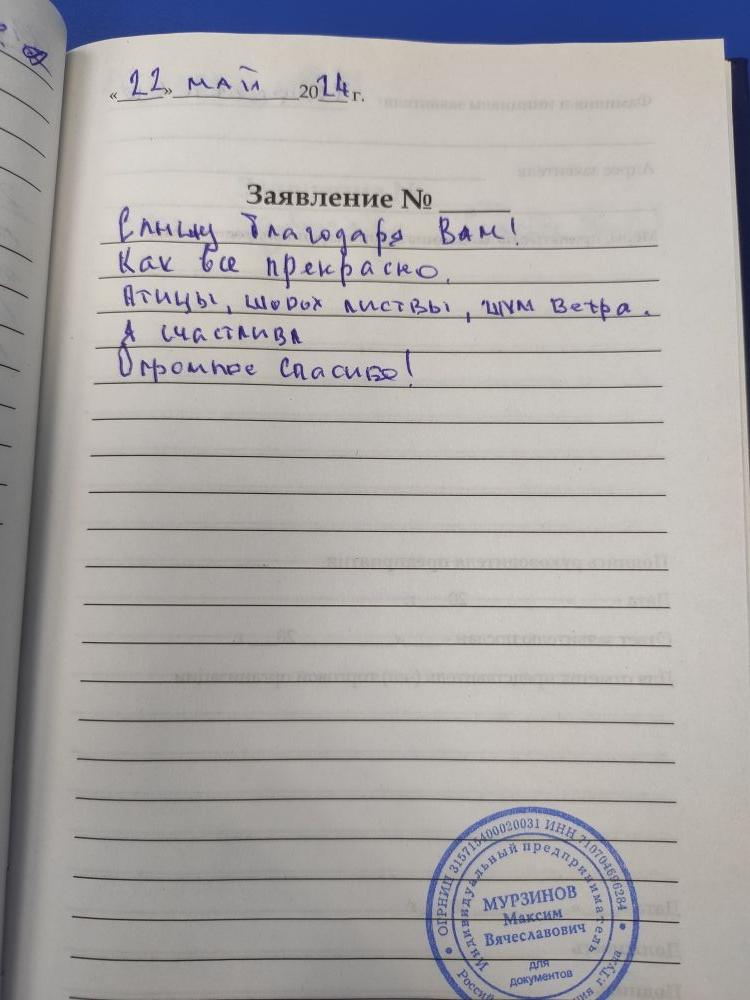 «22» май 2024 г.
Заявление №
Слышу благодаря Вам!
Как все прекрасно.
Птицы, шорох листвы, шум ветра.
Я счастлива
Огромное спасибо!
ОГРНИП 315715400020031 ИНН 710704696284
Индивидуальный предприниматель
МУРЗИНОВ
Максим
Вячеславович
для
документов
г.Тула